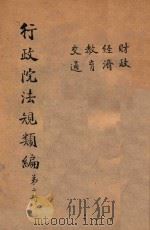 財政
經濟
教育
交通
行政院法規類編
第二